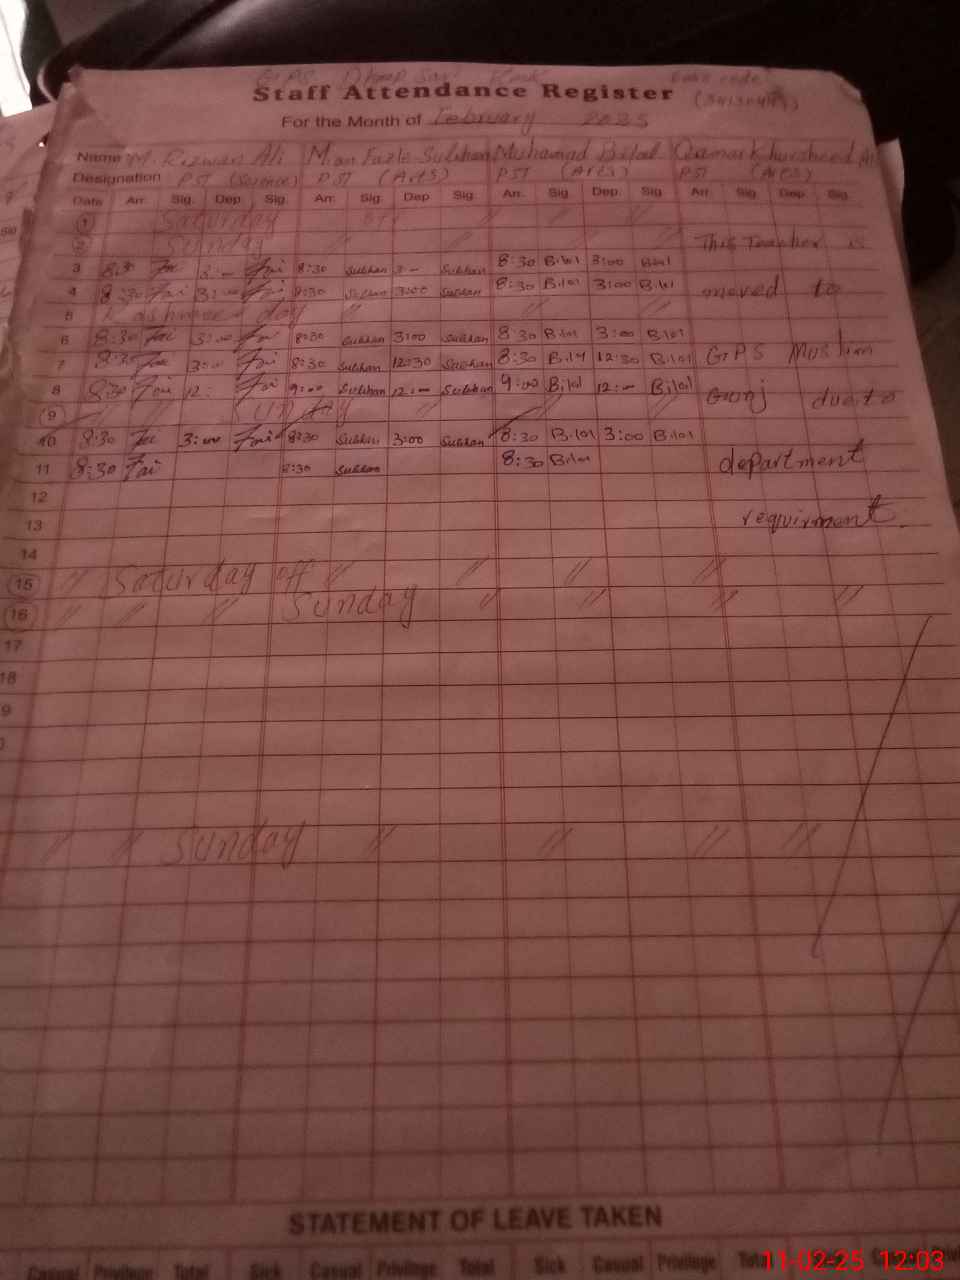 GPS Dhoop Sari
Staff Attendance Register
For the Month of February 2025
Name M. Rizwan Ali Mian Fazle Subhan Muhamad Bilal Qamar Khursheed
Designation PST (Science) PST (Arts) PST (Arts) PST (Arts)
Date Arr. Sig. Dep. Sig. Arr. Sig. Dep. Sig. Arr. Sig. Dep. Sig. Arr. Sig. Dep. Sig.
1 Saturday off // // //
2 Sunday // // // // This Teacher is
3 8:30 3:00 8:30 Subhan 3:00 Subhan 8:30 Bilal 3:00 Bilal
4 8:30 3:00 8:30 Subhan 3:00 Subhan 8:30 Bilal 3:00 Bilal moved to
5 Kashmeer day // // // //
6 8:30 3:00 8:30 Subhan 3:00 Subhan 8:30 Bilal 3:00 Bilal
7 8:30 3:00 8:30 Subhan 12:30 Subhan 8:30 Bilal 12:30 Bilal GPS Muslim
8 8:30 12: 9:00 Subhan 12:00 Subhan 9:00 Bilal 12:00 Bilal
9 Sunday // // // // Gunj due to
10 8:30 3:00 8:30 Subhan 3:00 Subhan 8:30 Bilal 3:00 Bilal
11 8:30 8:30 Subhan 8:30 Bilal department
12
13 requirment.
14
15 // Saturday off // // // //
16 // // // Sunday // // // //
17
18
9
// // Sunday // // // //
STATEMENT OF LEAVE TAKEN
Casual Privilege Total Sick Casual Privilege Total Sick Casual Privilege Total
11-02-25 12:03